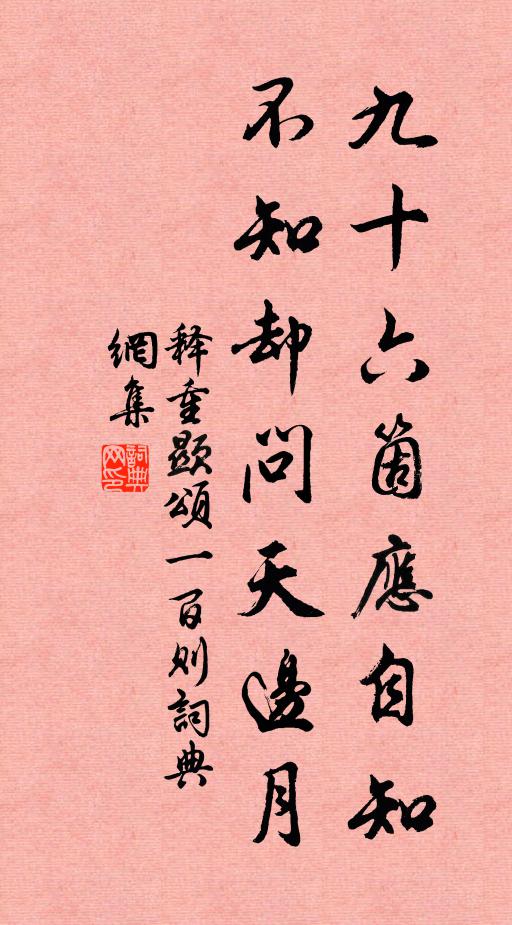 九十六箇應自知
不知却問天邊月
释重顯頌一百则詞典
網集
詞典
网印